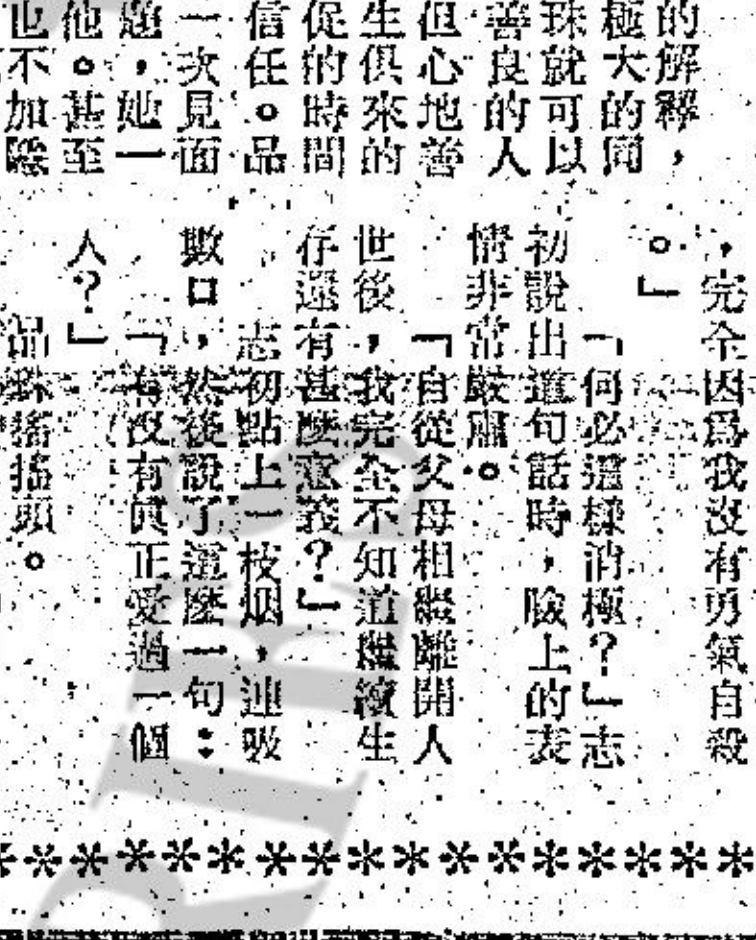 的解釋，
極大的同
珠就可以
善良的人
但心地善
生俱來的
促的時間
信任。品
一次見面
題，她一
他。甚至
也不加
，完全因爲我沒有勇氣自殺
。」
「何必這樣消極？」志
初說出這句話時，臉上的表
情非常嚴肅。
「自從父母相繼離開人
世後，我完全不知道繼續生
存還有甚麼意義？」
志初點上一枝烟，連吸
數口，然後說了這麼一句：
「有沒有眞正愛過一個
人？」
品珠搖搖頭。
RIES